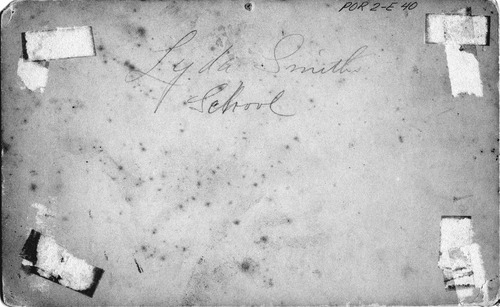 POR 2-E 40
Lyda Smiths
School